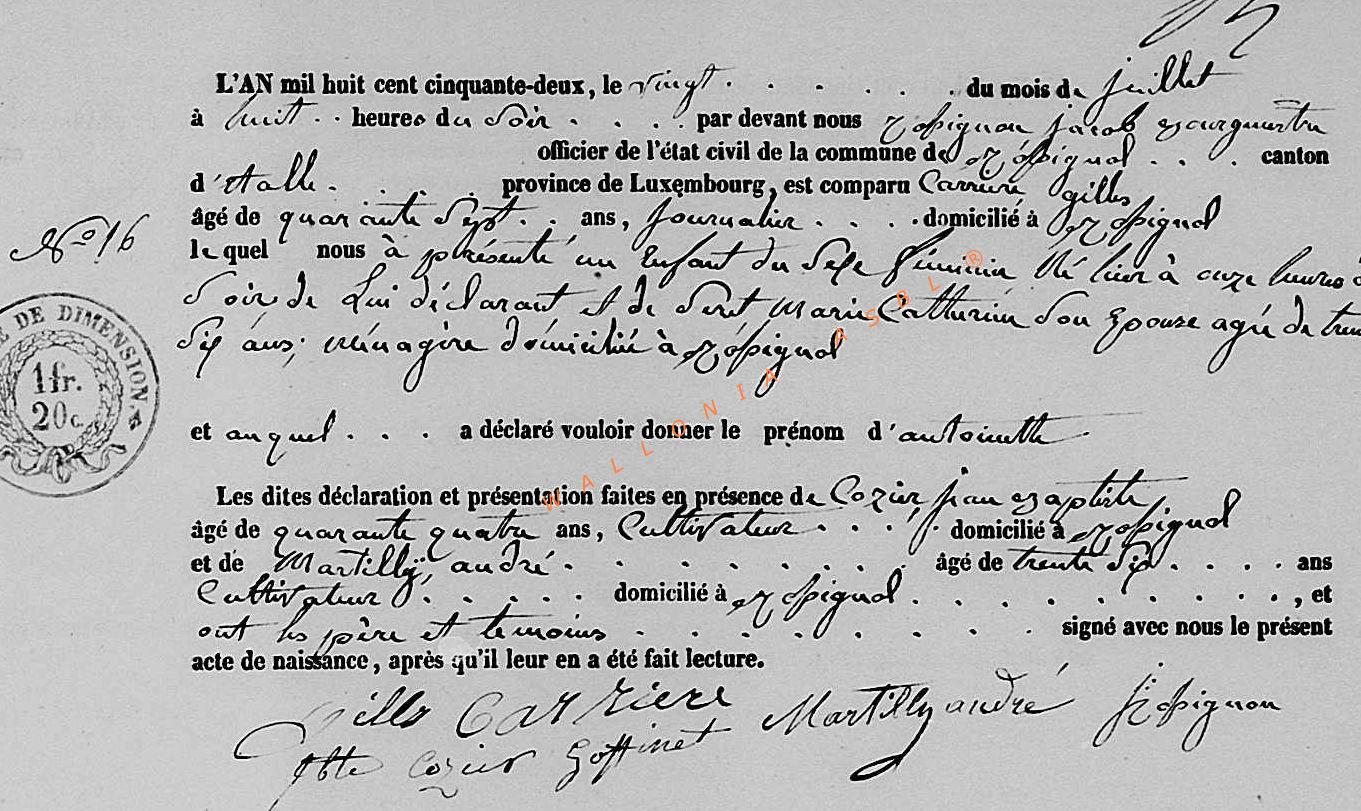 L'AN mil huit cent cinquante-deux, le vingt . . . . . . . du mois de juillet
à huit . . heures du Soir . . . . par devant nous Rossignon jacob Bourgmestre
officier de l'état civil de la commune de Rossignol . . . canton
d'etalle . . . . province de Luxembourg, est comparu Carrière gilles
âgé de quarante Sept . . ans, journalier . . . . domicilié à Rossignol
N° 16
lequel nous à présenté un Enfant du Sexe féminin Né hier à onze heures
Soir de Lui déclarant et de Marie Catherine Son Epouse agée de
Six ans, ménagère domiciliée à Rossignol
DE DIMENSION
1 fr.
20 c.
et auquel . . . a déclaré vouloir donner le prénom d'antoinette
Les dites déclaration et présentation faites en présence de Cozier jean Baptiste
âgé de quarante quatre ans, Cultivateur . . . . domicilié à Rossignol
et de Martilly, andré . . . . . . . . âgé de trente Six . . . . ans
Cultivateur . . . . . domicilié à Rossignol . . . . . . . . . . , et
ont les père et temoins . . . . . . . . signé avec nous le présent
acte de naissance, après qu'il leur en a été fait lecture.
Gills Carriere Martilly andré Rossignon
Jbte Cozier Goffinet
WALLONIA ASBL ®